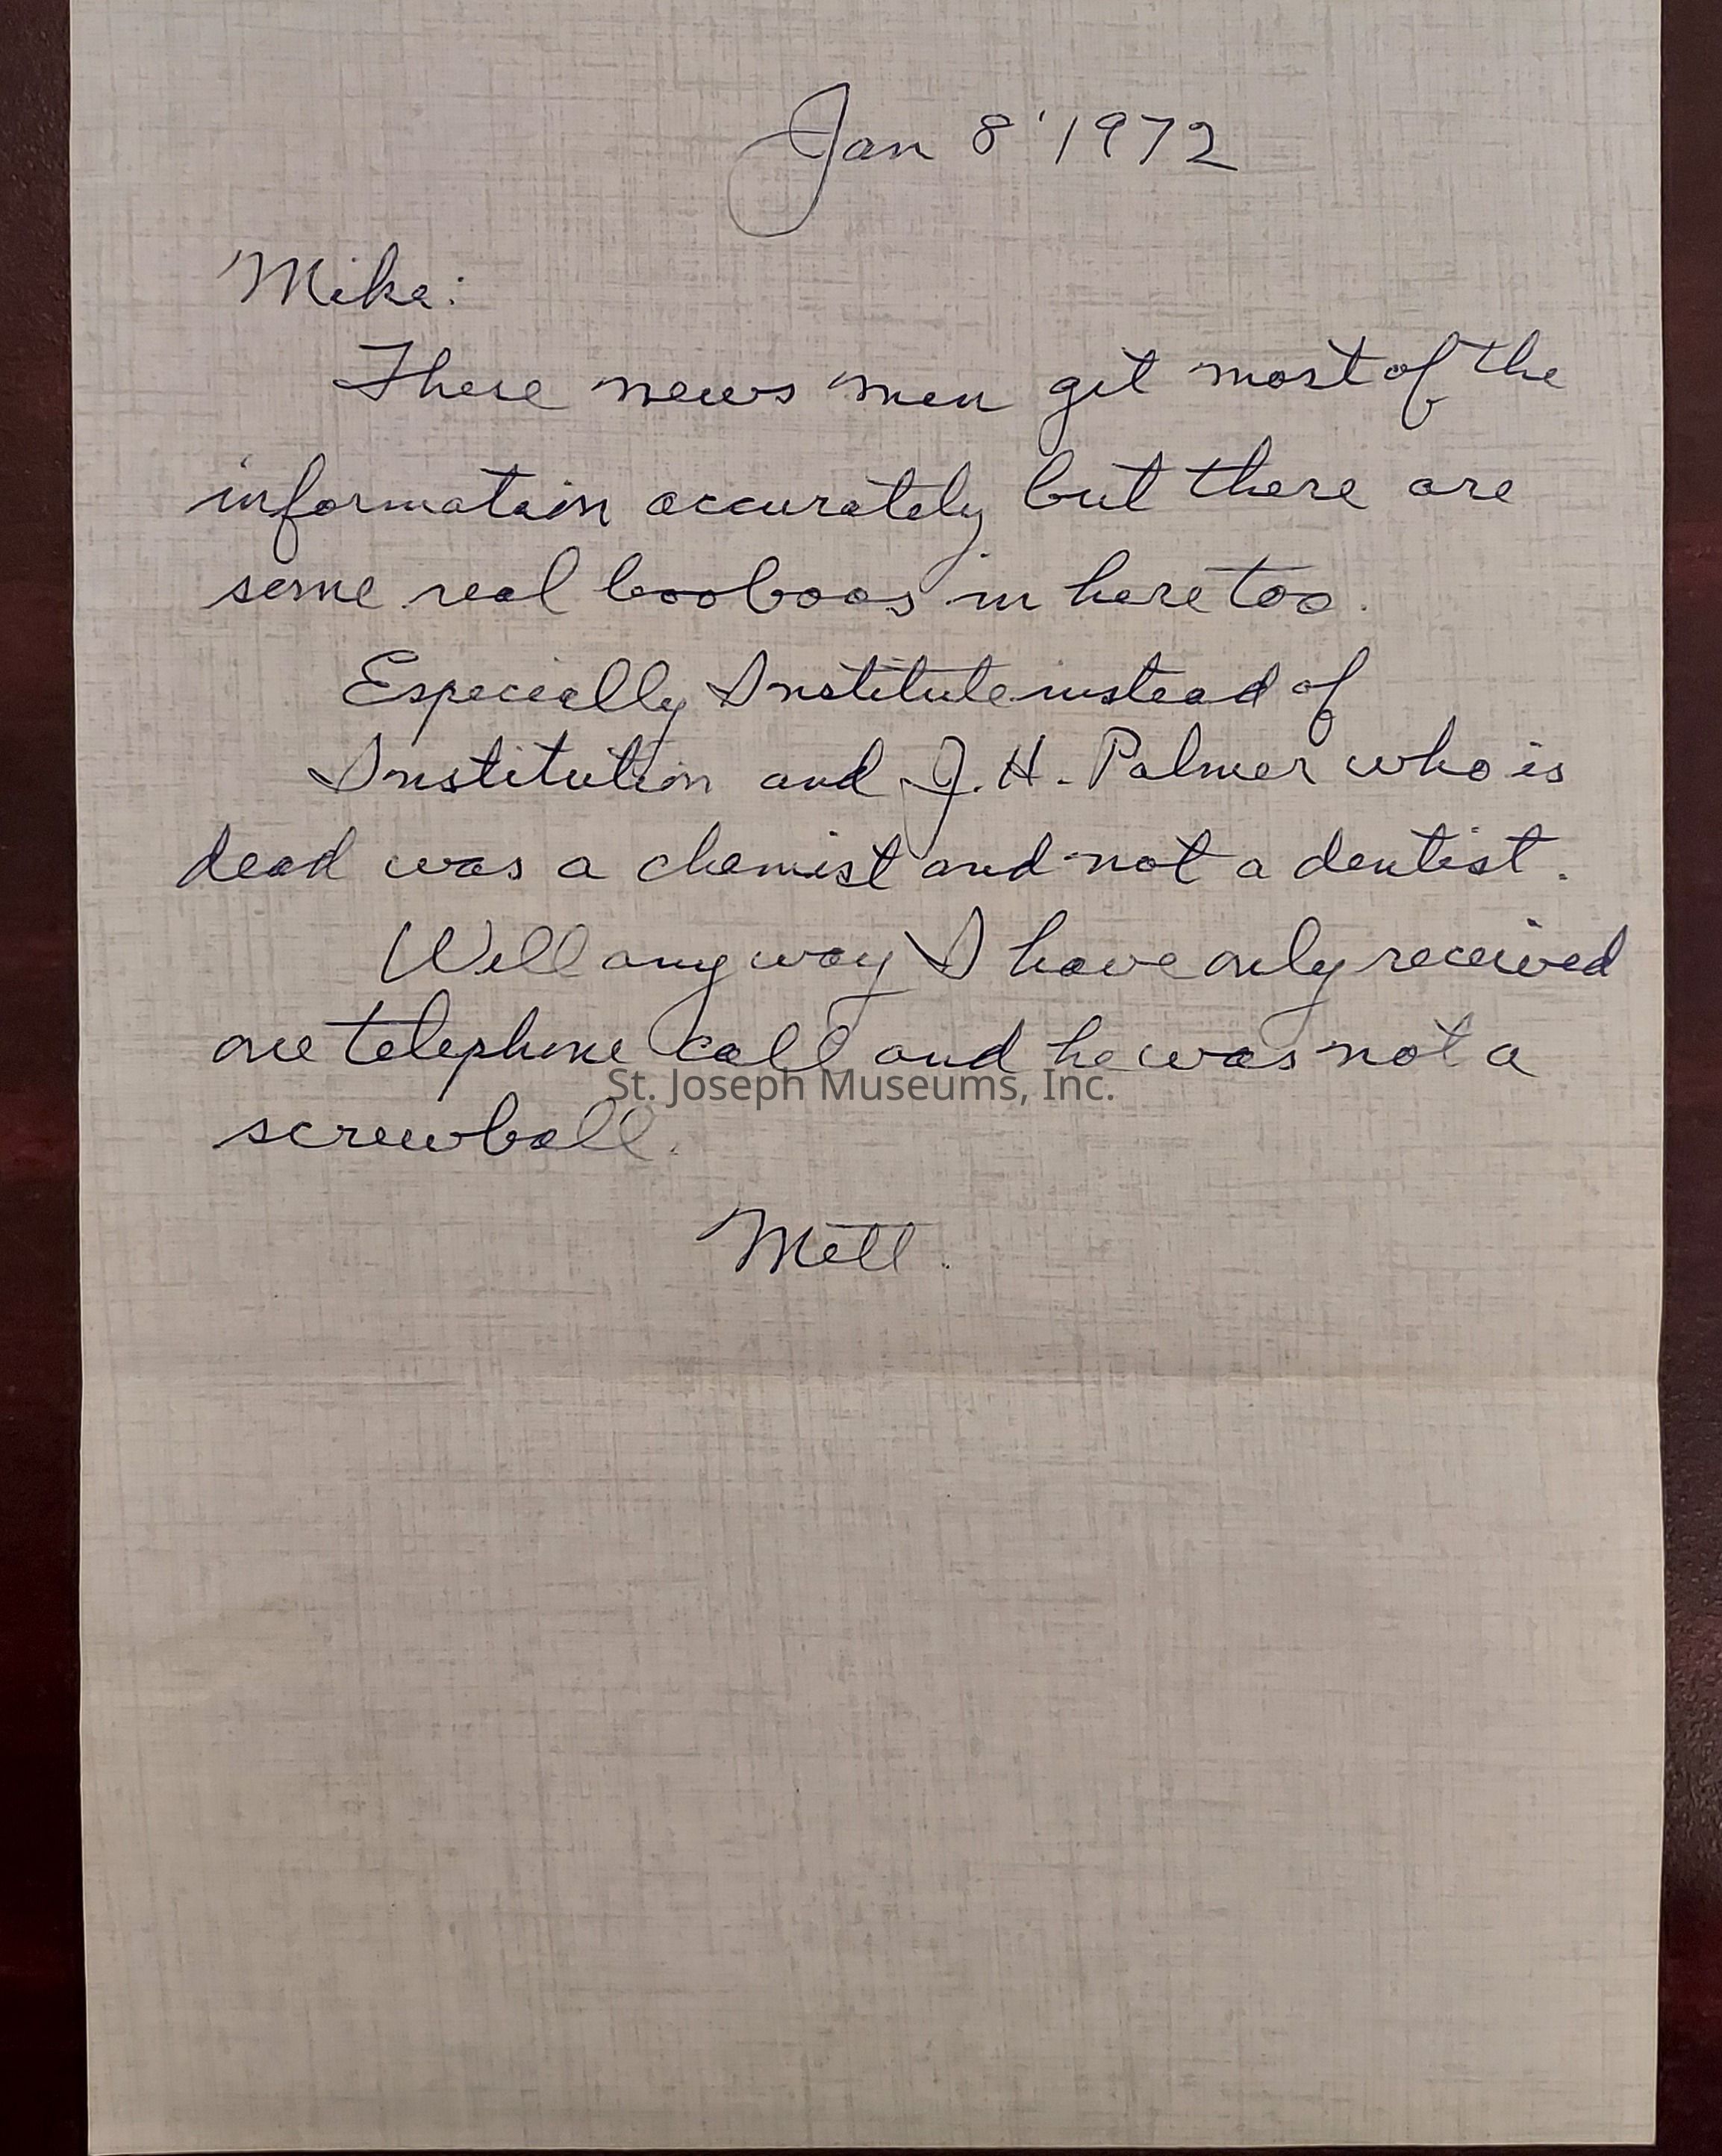 Jan 8 '1972
Mike:
These news men get most of the
information accurately but there are
some real booboos in here too.
Especially Institute instead of
Institution and J. H. Palmer who is
dead was a chemist and not a dentist.
Well any way I have only received
one telephone call and he was not a
St. Joseph Museums, Inc.
screwball.